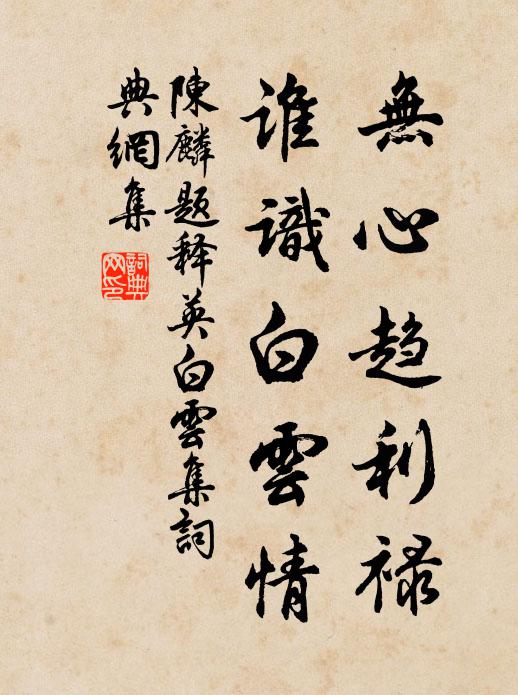 無心趋利禄
誰識白雲情
陳麟题释英白雲集詞
典網集
詞典
网印